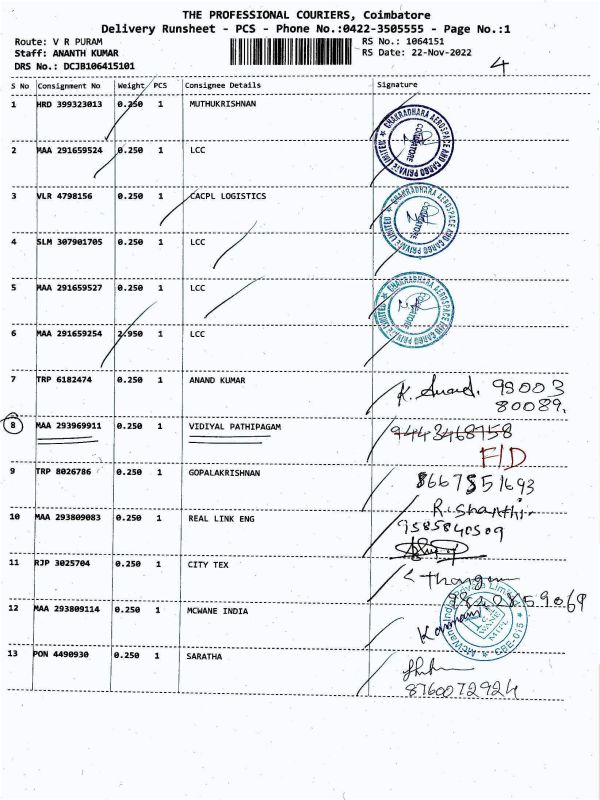 THE PROFESSIONAL COURIERS, Coimbatore
Delivery Runsheet - PCS - Phone No.:0422-3505555 - Page No.:1
Route: V R PURAM RS No.: 1064151
Staff: ANANTH KUMAR RS Date: 22-Nov-2022
DRS No.: DCJB106415101 4
S No Consignment No Weight PCS Consignee Details Signature
1 HRD 399323013 0.250 1 MUTHUKRISHNAN
CHAKRADHARA AEROSPACE AND CARGO PRIVATE LIMITED COIMBATORE
2 MAA 291659524 0.250 1 LCC
3 VLR 4798156 0.250 1 CACPL LOGISTICS
CHAKRADHARA AEROSPACE AND CARGO PRIVATE LIMITED COIMBATORE
4 SLM 307901705 0.250 1 LCC
5 MAA 291659527 0.250 1 LCC
CHAKRADHARA AEROSPACE AND CARGO PRIVATE LIMITED COIMBATORE
6 MAA 291659254 2.950 1 LCC
7 TRP 6182474 0.250 1 ANAND KUMAR K. Anand. 98003
80089.
8 MAA 293969911 0.250 1 VIDIYAL PATHIPAGAM 9443468958
F/D
9 TRP 8026786 0.250 1 GOPALAKRISHNAN 8667551693
R. Shanthi
10 MAA 293809083 0.250 1 REAL LINK ENG 9585840509
11 RJP 3025704 0.250 1 CITY TEX
12 MAA 293809114 0.250 1 MCWANE INDIA
McWane India Private Limited CBE-015
13 PON 4490930 0.250 1 SARATHA
8760072924